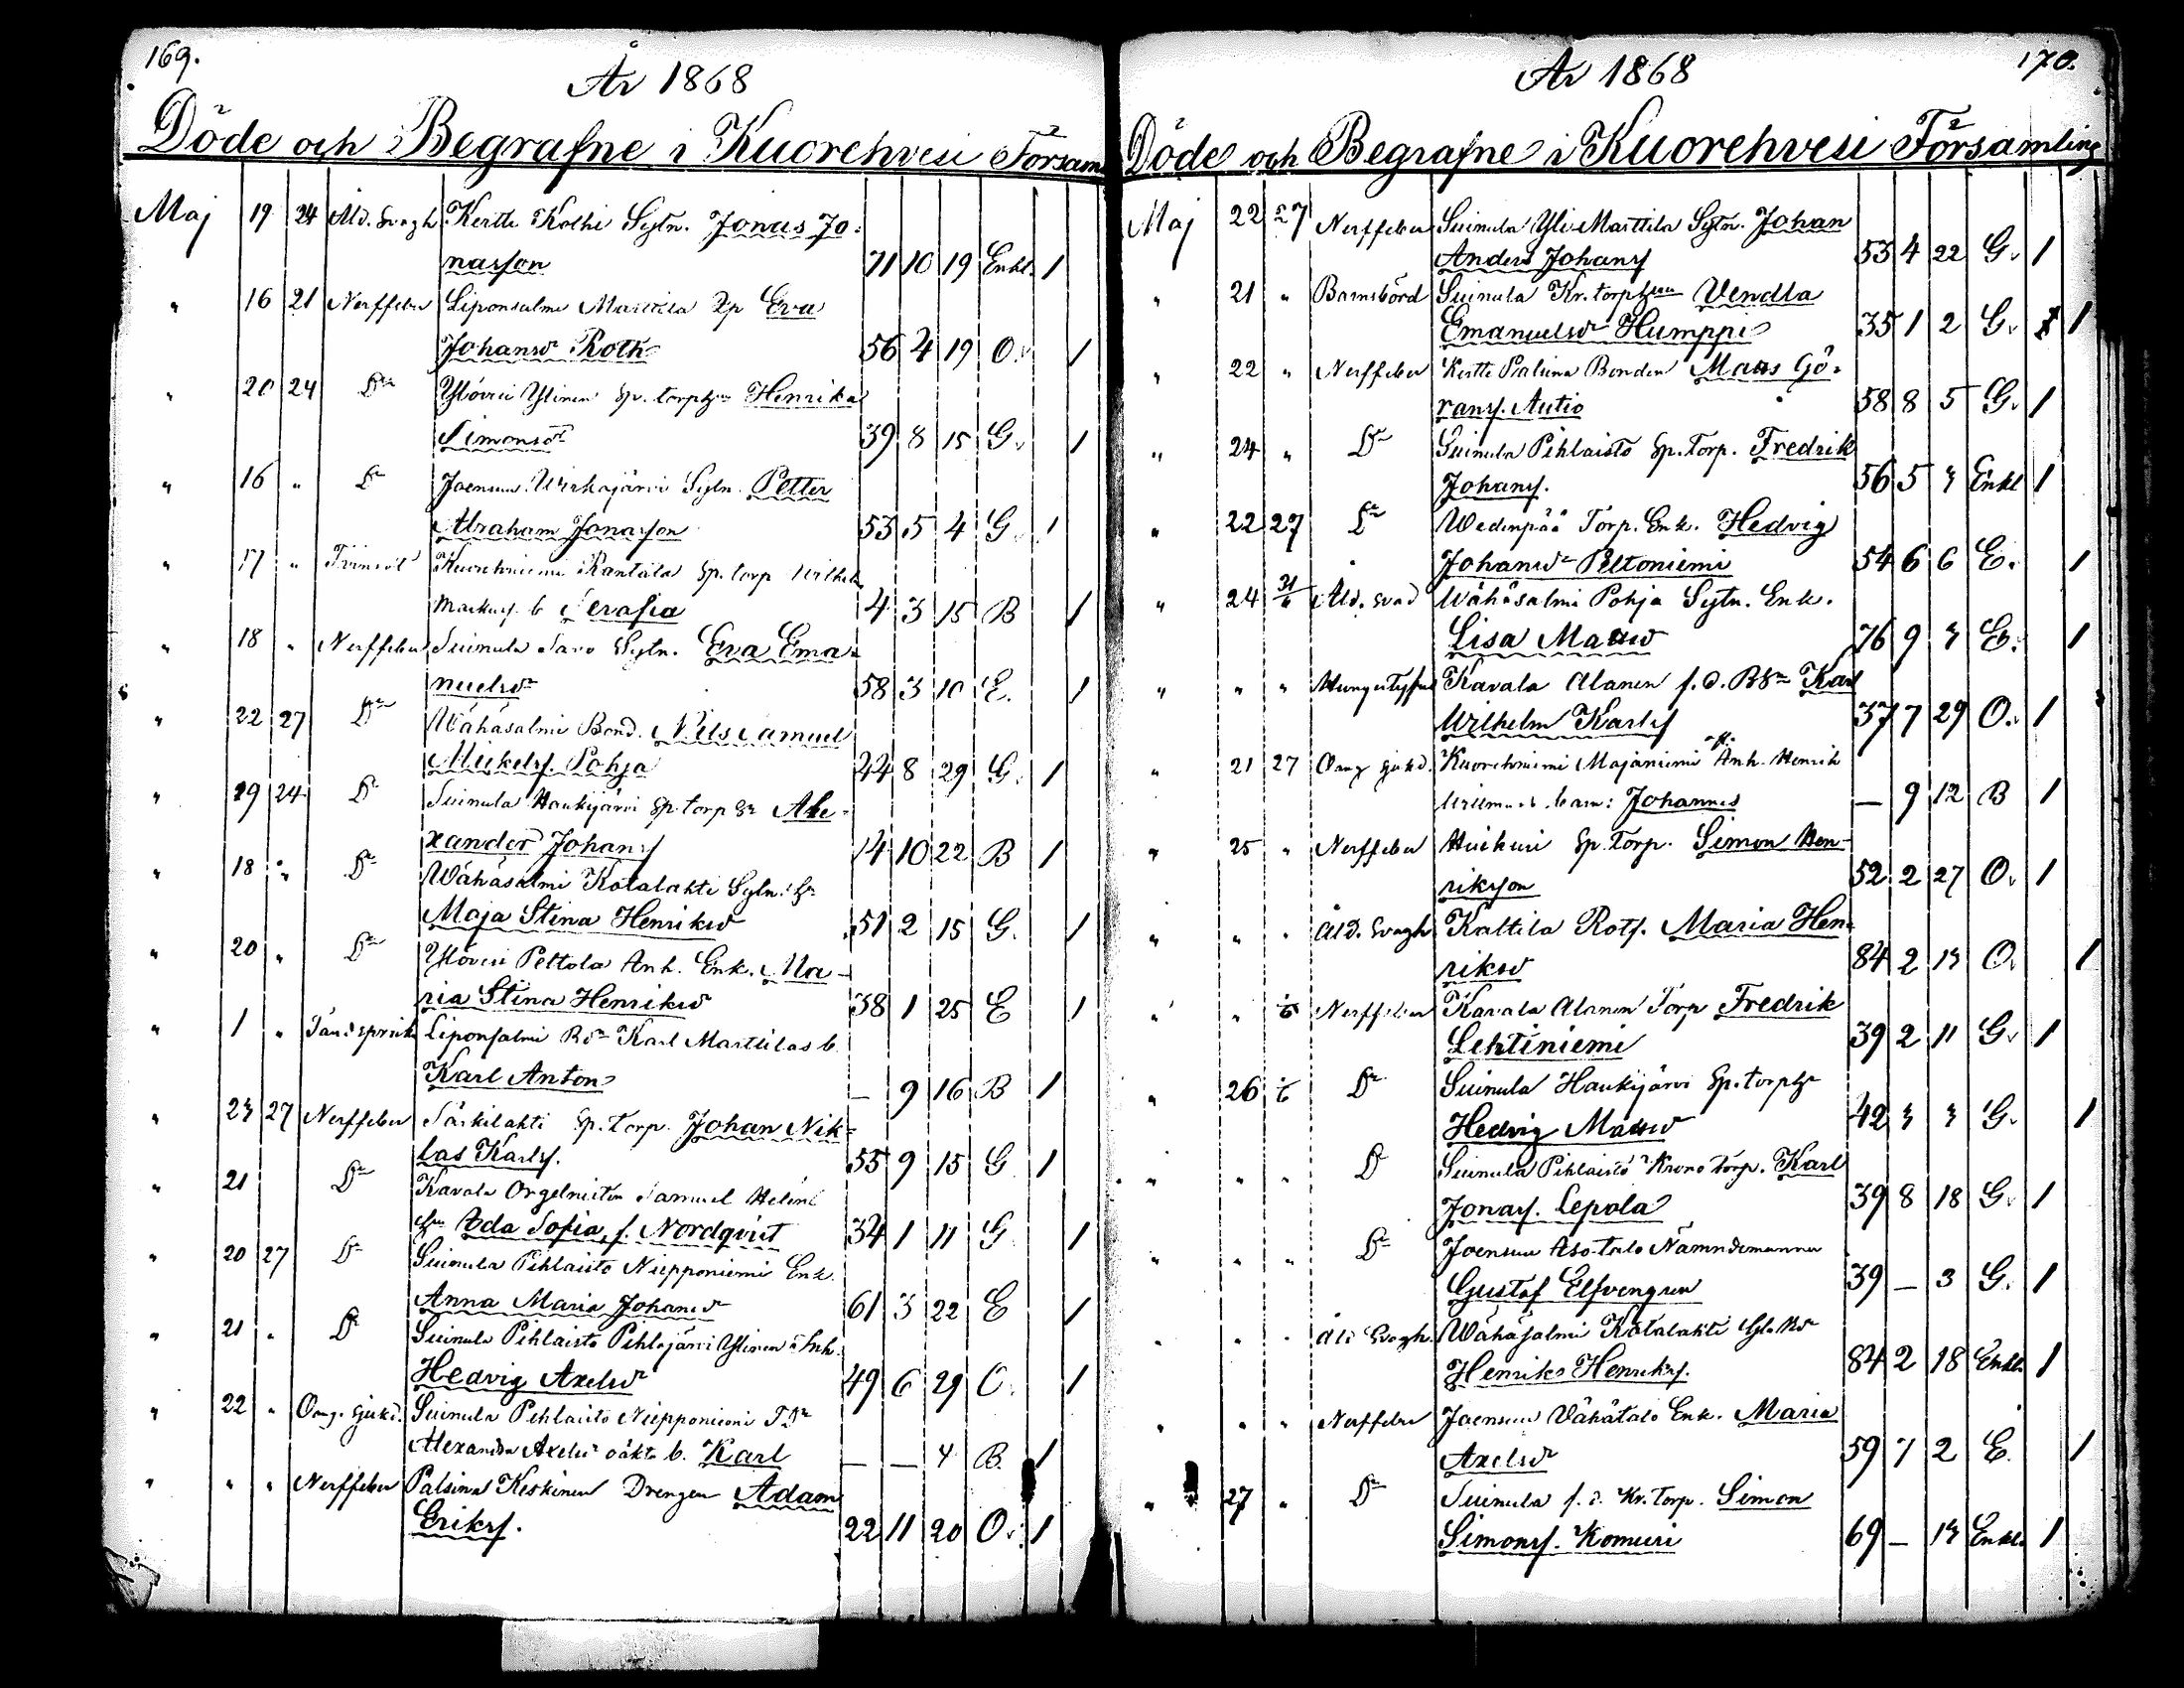 169.
År 1868
Döde och Begrafne i Kuorehvesi Försam
Maj 19 24 Åld. Svagh Kertte Kolhi Sytn. Jonas Jo-
nasson 71 10 19 Enkl. 1
" 16 21 Nerffeber Liponsalmi Marttila Eva
Johansdr Roth 56 4 19 O. 1
" 20 24 Do Ylöveri Ylinen Sp. torphu Henrika
Simonsdr 39 8 15 G. 1
" 16 " Do Joensuu Sytn. Petter
Abraham Jonasson 53 5 4 G. 1
" 17 " Kuorehniemi Rantala Sp. torp Wilhelm
Markusf. b Serafia 4 3 15 B 1
" 18 " Nerffeber Suinula Savo Sytn. Eva Ema-
nuelsdr 58 3 10 E. 1
" 22 27 Do Wähäsalmi Bond. Nils Samuel
Mickelsf. Pohja 44 8 29 G. 1
" 19 24 Do Suinula Haukijärvi Sp. torp Ale-
xander Johansf 14 10 22 B 1
" 18 " Do Wähäsalmi Kotalahti Sytn. hu
Maja Stina Henriksdr 51 2 15 G. 1
" 20 " Do Ylöveri Peltola Anh. Enk. Ma-
ria Stina Henriksdr 38 1 25 E 1
" 1 " Liponsalmi Karl Marttilas b.
Karl Anton — 9 16 B 1
" 23 27 Nerffeber Särkilahti Sp. Torp. Johan Nik-
las Karlsf. 55 9 15 G 1
" 21 Do Kavala Orgelnisten Samuel Heléns
hu Ida Sofia, f. Nordqvist 34 1 11 G 1
" 20 27 Do Suinula Pihlaisto Niipponiemi Enk.
Anna Maria Johansdr 61 3 22 E 1
" 21 " Do Suinula Pihlaisto Pihlajärvi Ylinen Inh.
Hedvig Axelsdr 49 6 29 O. 1
" 22 " Oang. sjukd. Suinula Pihlaisto Niipponiemi
Alexandra Axelsdr oäkta b. Karl — — 4 B. 1
" " " Nerffeber Palsina Keskinen Drengen Adam
Eriksf. 22 11 20 O. 1
170.
År 1868
Döde och Begrafne i Kuorehvesi Församling
Maj 22 27 Nerffeber Suinula Yli Marttila Sytn. Johan
Anders Johansf 53 4 22 G. 1
" 21 " Barnsbörd Suinula Kr. torphun Vendla
Emanuelsdr Humppi 35 1 2 G. 1
" 22 " Nerffeber Kertte Palsina Bonden Mats Gö-
ransf. Autio 58 8 5 G. 1
" 24 " Do Suinula Pihlaisto Sp. Torp. Fredrik
Johansf. 56 5 3 Enkl 1
" 22 27 Do Wedenpää Torp. Enk. Hedvig
Johansdr Peltoniemi 54 6 6 E. 1
" 24 Åld. svag Wähäsalmi Pohja Sytn. Enk.
Lisa Matsdr 76 9 3 E. 1
" " " Hungertyfus Kavala Alanen f. d. Karl
Wilhelm Karlsf 37 7 29 O. 1
" 21 27 Oang sjukd. Kuorehniemi Majaniemi Anh. Henrik
barn: Johannes — 9 12 B 1
" 25 " Nerffeber Huikuri Sp. Torp. Simon Hen-
riksson 52 2 27 O. 1
" " " Åld. Svagh Kaltila Rotf. Maria Hen-
riksdr 84 2 13 O. 1
" " Nerffeber Kavala Alanen Torp Fredrik
Lehtiniemi 39 2 11 G. 1
" 26 Do Suinula Haukijärvi Sp. torphu
Hedvig Matsdr 42 3 3 G. 1
" " " Do Suinula Pihlaisto Krono Torp. Karl
Jonasf. Lepola 39 8 18 G. 1
" " " Do Joensuu Iso-talo Nämndemannen
Gustaf Elfvengren 39 — 3 G. 1
" " " Åld Svagh. Wähäsalmi Kotalahti
Henrik Henriksf. 84 2 18 Enkl. 1
" " " Nerffeber Joensuu Vähätalo Enk. Maria
Axelsdr 59 7 2 E. 1
" 27 " Do Suinula f. d. Kr. Torp. Simon
Simonsf. Komuri 69 — 13 Enkl. 1